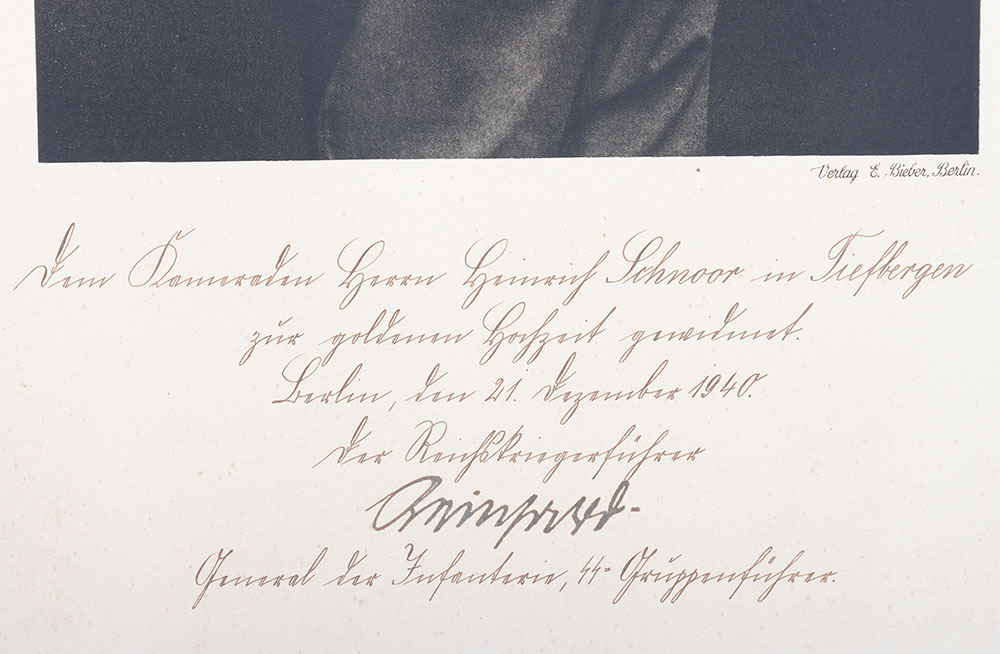 Verlag E. Bieber, Berlin.
Dem Kameraden Herrn Heinrich Schnoor in Tiefbergen
zur goldenen Hochzeit gewidmet.
Berlin, den 21. Dezember 1940.
Der Reichskriegerführer
Reinhard.
General der Infanterie, SS-Gruppenführer.